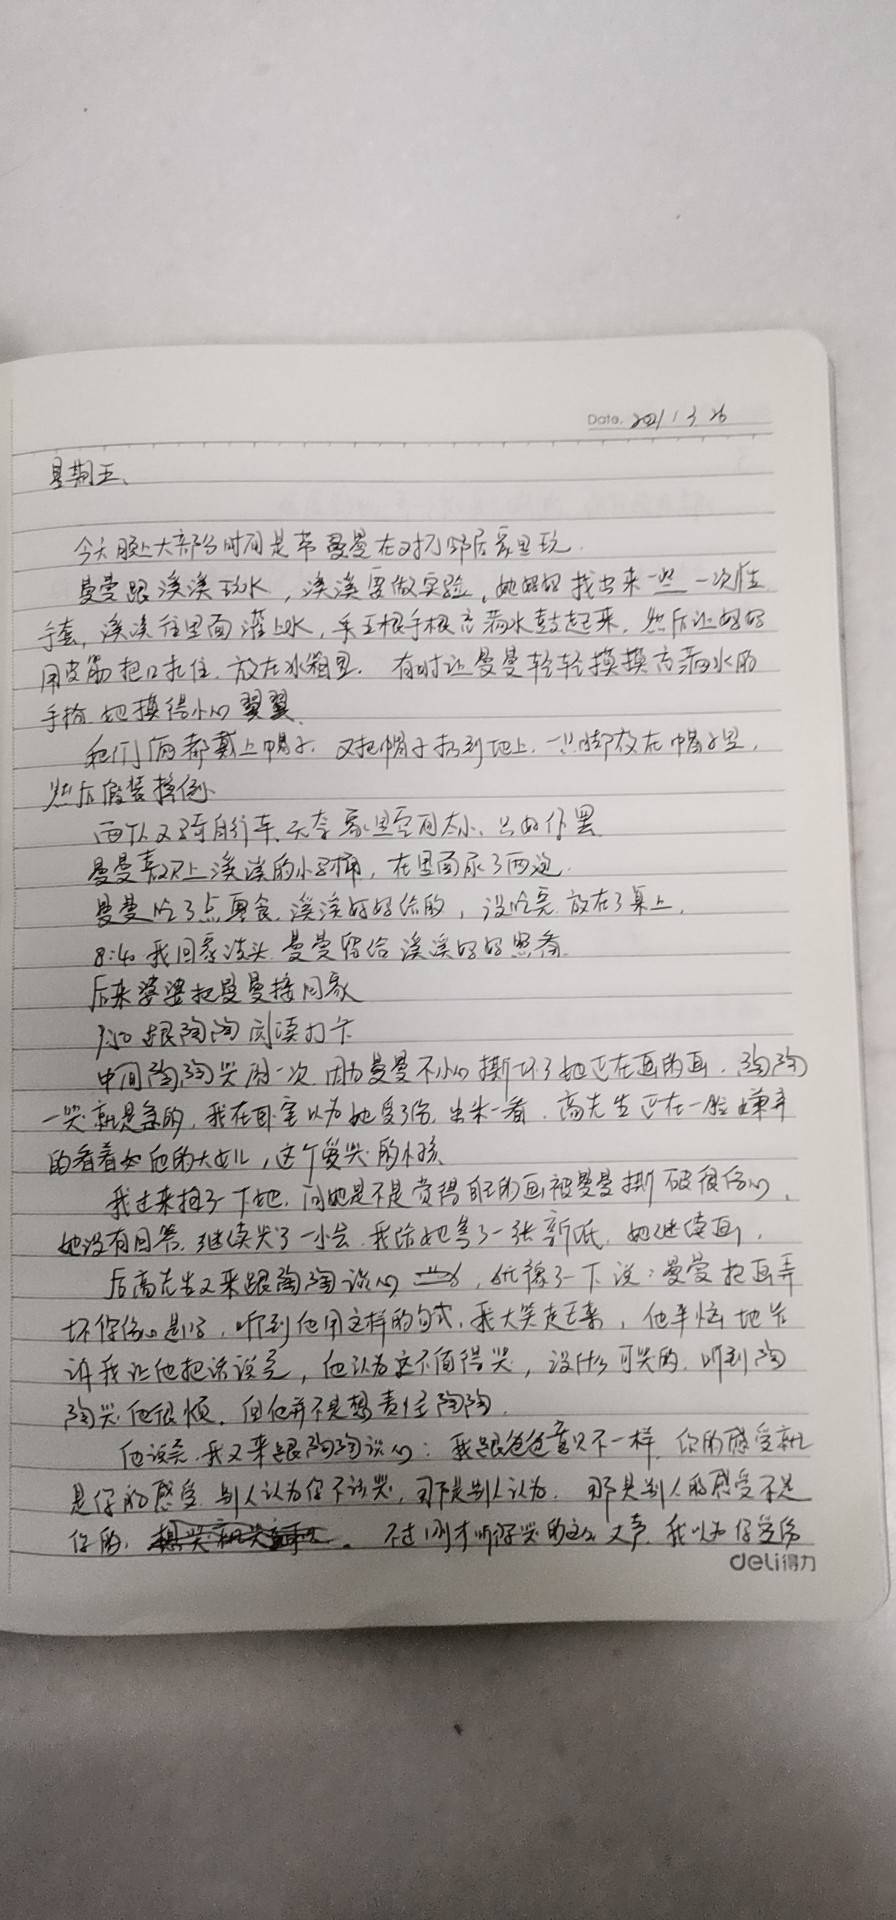 Date. 2021 3 26
星期五、
今天晚上大部分时间是带曼曼在对门邻居家里玩.
曼曼跟溪溪玩水，溪溪要做实验，她妈妈找出来一些一次性
手套，溪溪往里面灌上水，手五根手根充满水鼓起来，然后让妈妈
用皮筋把口扎住，放在水箱里. 有时让曼曼轻轻摸摸充满水的
手掐 她摸得小心翼翼、
她们俩都戴上帽子. 又把帽子扔到地上，一只脚放在帽子里，
然后假装摔倒、
两个人又骑自行车、无奈家里空间太小、只好作罢
曼曼喜欢上溪溪的小马桶，在里面尿了两次.
曼曼吃了点零食，溪溪妈妈给的，没吃完 放在了桌上.
8:40 我回家洗头 曼曼留给溪溪妈妈照看.
后来婆婆把曼曼接回家
跟陶陶阅读打卡
中间陶陶哭闹一次 因为曼曼不小心撕坏了她正在画的画. 陶陶
一哭就是急的，我在卧室以为她受了伤，出来一看. 高先生正在一脸嫌弃
的看着如他的大女儿，这个爱哭的小孩、
我过来抱了一下她，问她是不是觉得自己的画被曼曼撕破很伤心，
她没有回答，继续哭了一小会 我给她拿了一张新纸，她继续画，
后高先生又来跟陶陶谈心，犹豫了一下说：曼曼把画弄
坏你伤心是吗，听到他用这样的句式，我大笑走过来，他羊恼地告
诉我让他把话说完，他认为这不值得哭，没什么可哭的，听到陶
陶哭他很烦. 但他并不是想责怪陶陶.
他说完，我又来跟陶陶谈心：我跟爸爸意见不一样，你的感受就
是你的感受 别人认为你不该哭，那是别人认为. 那是别人的感受不是
你的， 不过刚才听你哭的这么大声，我以为你受伤
deli得力